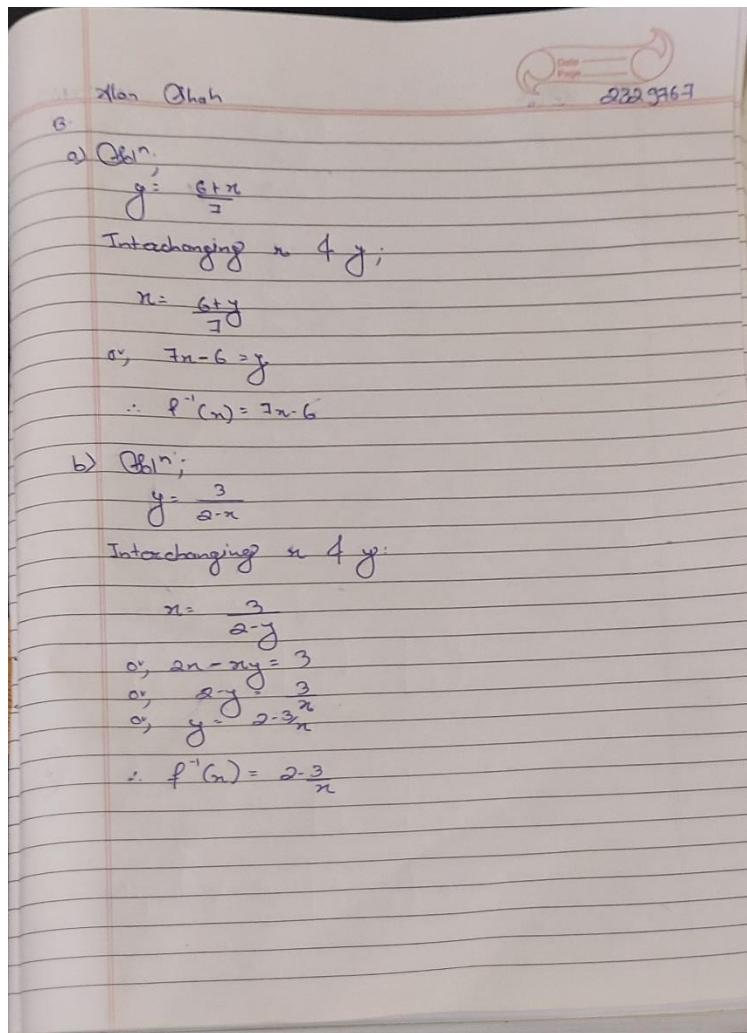 Alan Shah 2329767
Date
Page
B.
a) Solⁿ;
y = 6+x/7
Interchanging x & y;
x = 6+y/7
or, 7x-6 = y
∴ f⁻¹(x) = 7x-6
b) Solⁿ;
y = 3/2-x
Interchanging x & y:
x = 3/2-y
or, 2x-xy = 3
or, 2-y = 3/x
or, y = 2-3/x
∴ f⁻¹(x) = 2-3/x